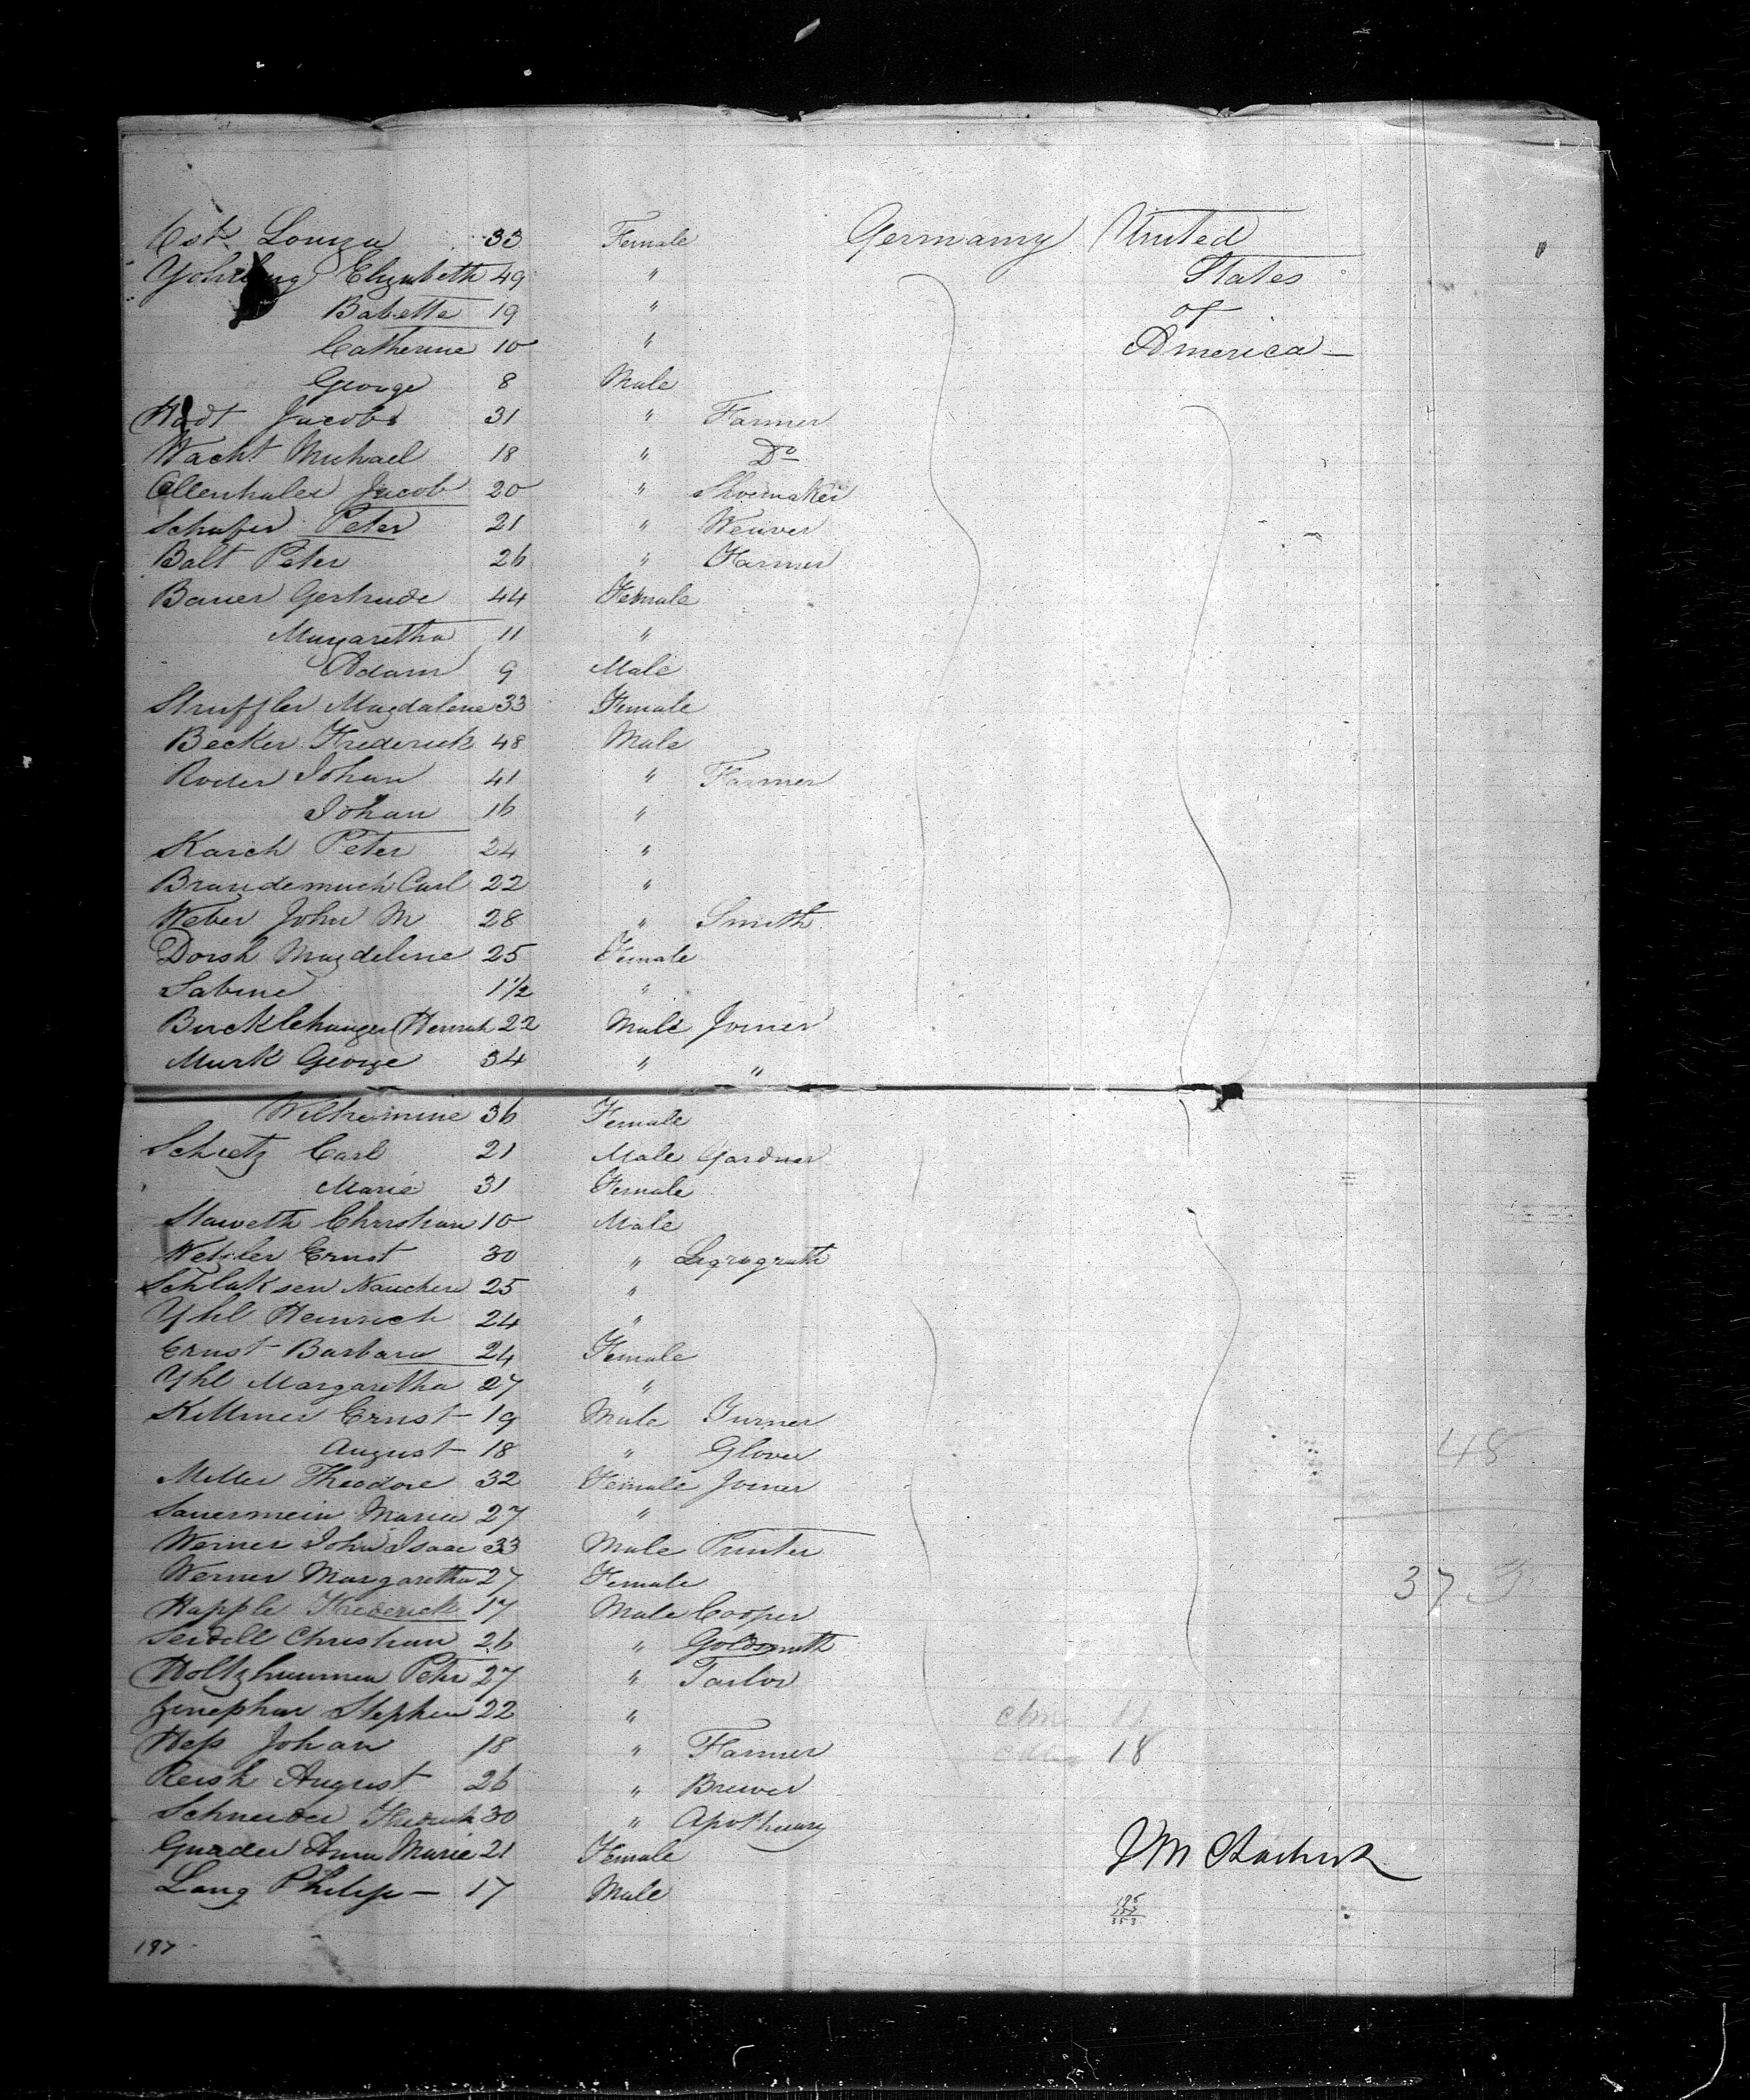 Ost Louiza 33 Female Germany United
Yohrling Elizabeth 49 " States
Babette 19 " of
Catherine 10 " America —
George 8 Male
Hadt Jacob 31 " Farmer
Wacht Michael 18 " Do
Jacob 20 " Shoemaker
Schafer Peter 21 " Weaver
Balt Peter 26 " Farmer
Bauer Gertrude 44 Female
Margaretha 11 "
Adam 9 Male
Struffler Magdalene 33 Female
Becker Frederick 48 Male
Roder Johan 41 " Farmer
Johan 16 "
Karch Peter 24 "
Brandemuch Carl 22 "
Weber John M 28 " Smith
Dorsh Magdelene 25 Female
Sabine 1½ "
Heinrich 22 Male Joiner
Murk George 34 " "
Wilhemine 36 Female
Schietz Carl 21 Male Gardner
Marie 31 Female
Staweth Christian 10 Male
Ernst 30 "
Schluksen 25 "
Yhl Heinrich 24 "
Ernst Barbara 24 Female
Yhl Margaretha 27 "
Killmer Ernst 19 Male Turner
August 18 " Glover 48
Miller Theodore 32 Female Joiner
Sauermein Maria 27 "
Werner John Isaac 33 Male Printer
Werner Margaretha 27 Female 373
Happle Frederick 17 Male Cooper
Seidell Christian 26 " Goldsmith
Peter 27 " Tailor
Stephen 22 "
Hess Johan 18 " Farmer 18
Reish August 26 " Brewer
Schneider Fredrich 30 " Apothecary
Guader Anna Marie 21 Female
Lang Philip — 17 Male
197